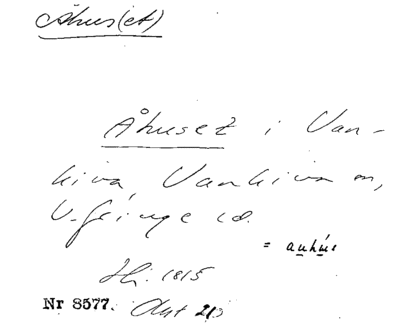 Åhus(et)
Åhuset i Van-
kiva, Vankiva sn,
V. Göinge hd.
= auhús
Hi. 1815
Nr 8577. Akt 213